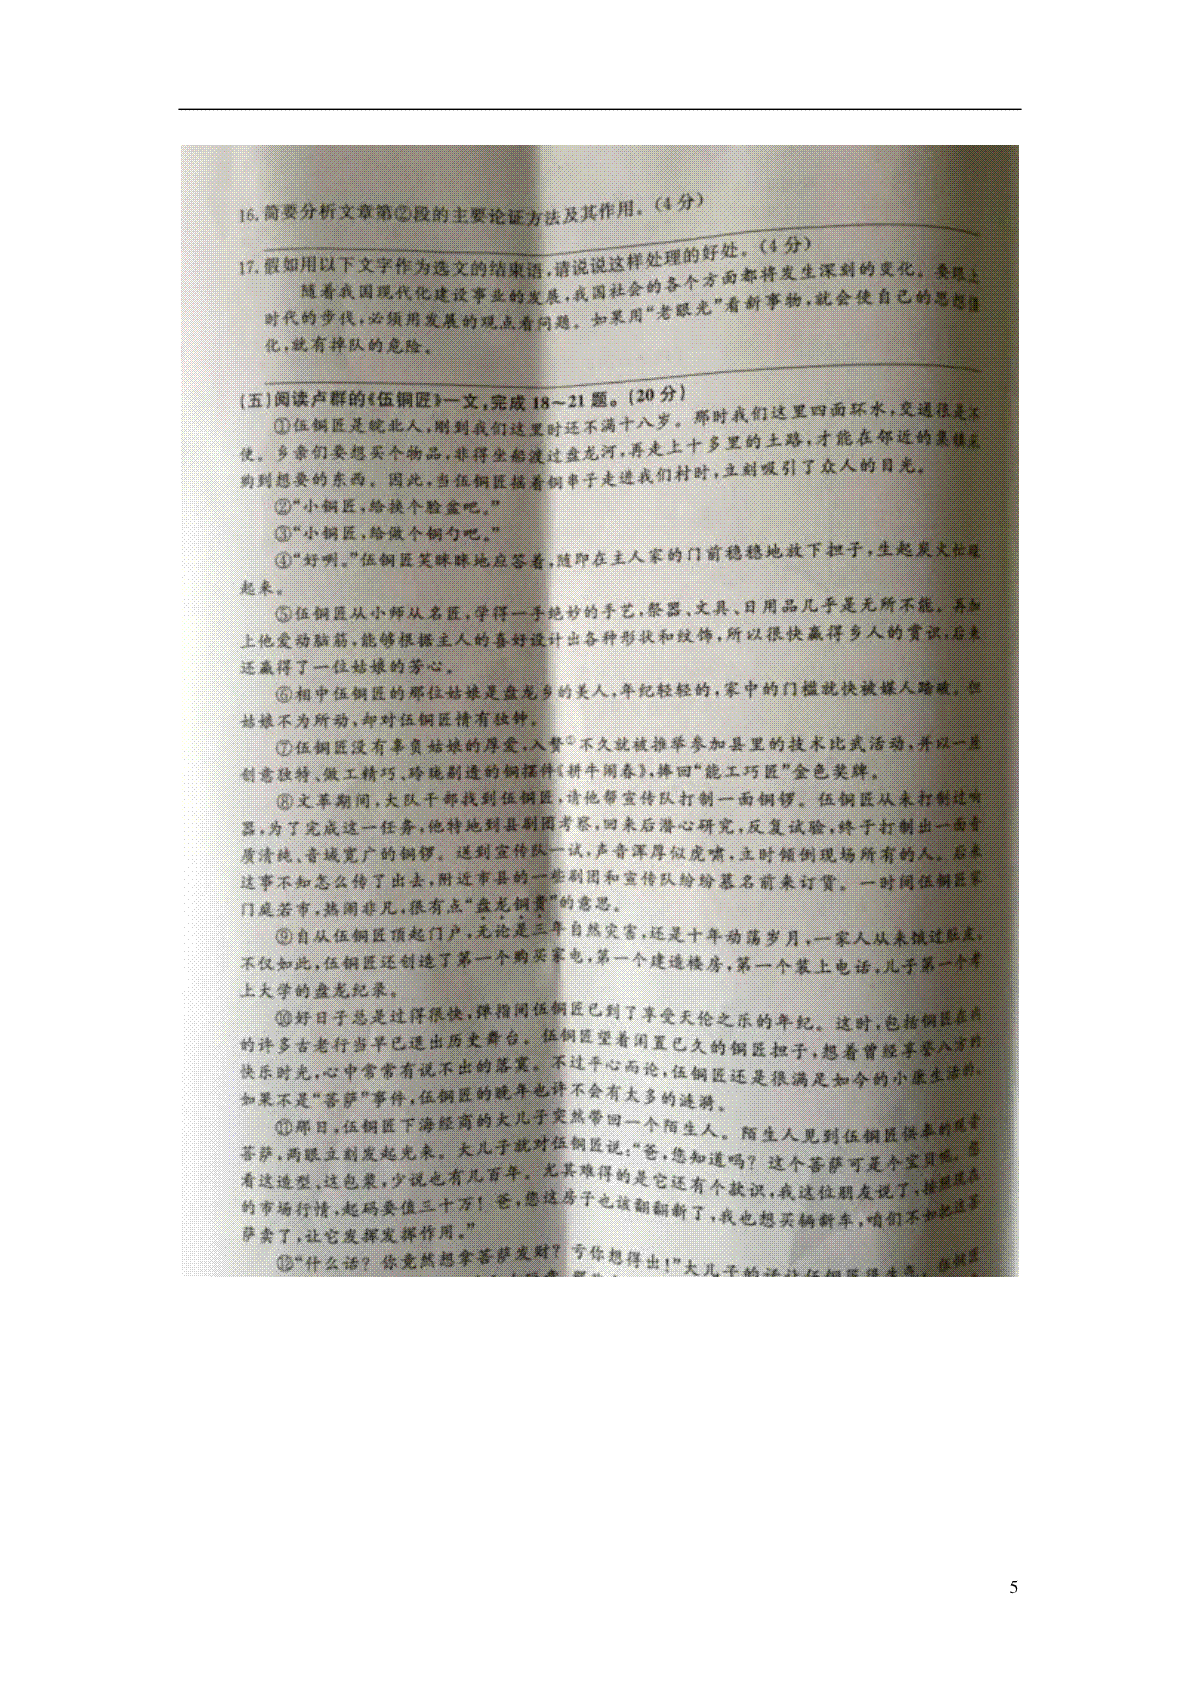 16.简要分析文章第②段的主要论证方法及其作用。(4分)
17.假如用以下文字作为选文的结束语,请说说这样处理的好处。(4分)
随着我国现代化建设事业的发展,我国社会的各个方面都将发生深刻的变化。要跟上
时代的步伐,必须用发展的观点看问题。如果用“老眼光”看新事物,就会使自己的思想僵
化,就有掉队的危险。
(五)阅读卢群的《伍铜匠》一文,完成18~21题。(20分)
①伍铜匠是皖北人,刚到我们这里时还不满十八岁。那时我们这里四面环水,交通很是不
便。乡亲们要想买个物品,非得坐船渡过盘龙河,再走上十多里的土路,才能在邻近的集镇采
购到想要的东西。因此,当伍铜匠摇着铜串子走进我们村时,立刻吸引了众人的目光。
②“小铜匠,给换个脸盆吧。”
③“小铜匠,给做个铜勺吧。”
④“好咧。”伍铜匠笑眯眯地应答着,随即在主人家的门前稳稳地放下担子,生起炭火忙碌
起来。
⑤伍铜匠从小师从名匠,学得一手绝妙的手艺,祭器、文具、日用品几乎是无所不能。再加
上他爱动脑筋,能够根据主人的喜好设计出各种形状和纹饰,所以很快赢得乡人的赏识,后来
还赢得了一位姑娘的芳心。
⑥相中伍铜匠的那位姑娘是盘龙乡的美人,年纪轻轻的,家中的门槛就快被媒人踏破。但
姑娘不为所动,却对伍铜匠情有独钟。
⑦伍铜匠没有辜负姑娘的厚爱,入赘①不久就被推举参加县里的技术比武活动,并以一座
创意独特、做工精巧、玲珑剔透的铜摆件《耕牛闹春》,捧回“能工巧匠”金色奖牌。
⑧文革期间,大队干部找到伍铜匠,请他帮宣传队打制一面铜锣。伍铜匠从未打制过响
器,为了完成这一任务,他特地到县剧团考察,回来后潜心研究,反复试验,终于打制出一面音
质清纯、音域宽广的铜锣。送到宣传队一试,声音浑厚似虎啸,立时倾倒现场所有的人。后来
这事不知怎么传了出去,附近市县的一些剧团和宣传队纷纷慕名前来订货。一时间伍铜匠家
门庭若市,热闹非凡,很有点“盘龙铜贵”的意思。
⑨自从伍铜匠顶起门户,无论是三年自然灾害,还是十年动荡岁月,一家人从未饿过肚皮。
不仅如此,伍铜匠还创造了第一个购买家电,第一个建造楼房,第一个装上电话,儿子第一个考
上大学的盘龙纪录。
⑩好日子总是过得很快,弹指间伍铜匠已到了享受天伦之乐的年纪。这时,包括铜匠在内
的许多古老行当早已退出历史舞台。伍铜匠望着闲置已久的铜匠担子,想着曾经享誉八方的
快乐时光,心中常常有说不出的落寞。不过平心而论,伍铜匠还是很满足如今的小康生活的,
如果不是“菩萨”事件,伍铜匠的晚年也许不会有太多的涟漪。
⑪那日,伍铜匠下海经商的大儿子突然带回一个陌生人。陌生人见到伍铜匠供奉的观音
菩萨,两眼立刻发起光来。大儿子就对伍铜匠说:“爸,您知道吗?这个菩萨可是个宝贝呢。您
看这造型、这包浆,少说也有几百年。尤其难得的是它还有个款识,我这位朋友说了,按照现在
的市场行情,起码要值三十万!爸,您这房子也该翻翻新了,我也想买辆新车,咱们不如把这菩
萨卖了,让它发挥发挥作用。”
⑫“什么话?你竟然想拿菩萨发财?亏你想得出!”大儿子的话让伍铜匠很生气。伍铜匠
5